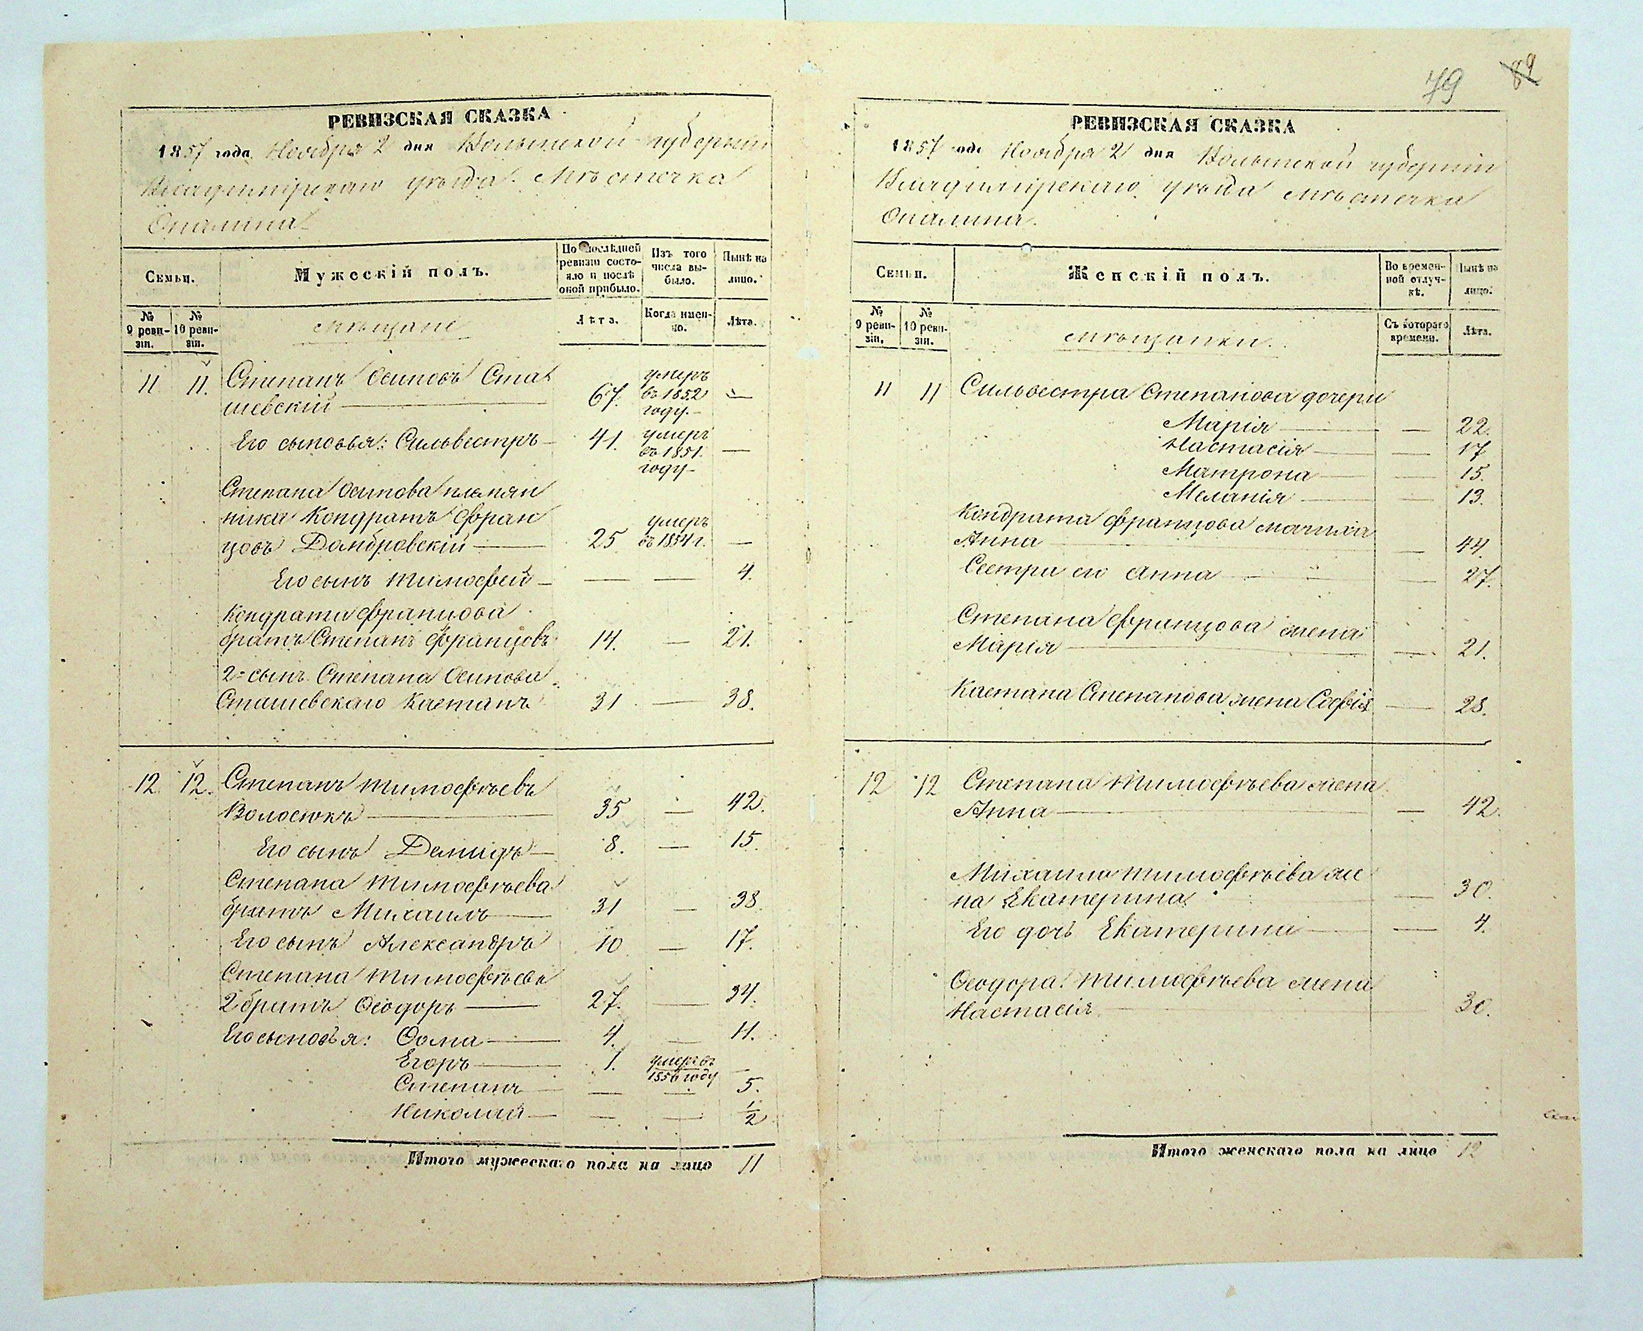 79 89
РЕВИЗСКАЯ СКАЗКА
1857 года Ноября 2 дня Волынской губерніи
Владимірскаго уѣзда Мѣстечка
Опалина
Семьи.
Мужескій полъ.
По послѣдней ревизіи состояло и послѣ оной прибыло.
Изъ того числа выбыло.
Нынѣ на лицо.
№ 9 ревизіи.
№ 10 ревизіи.
мѣщане
Лѣта.
Когда именно.
Лѣта.
11 11. Степанъ Осиповъ Ста
шевскій 67. умеръ въ 1852 году. —
Его сыновья: Сильвестръ 41. умеръ въ 1851. году —
Степана Осипова племян
ника Кондратъ Фран
цовъ Домбровскій 25 умеръ въ 1854 г. —
Его сынъ Тимофей — — 4.
Кондрата Францова
братъ Степанъ Францовъ 14. — 21.
2-сынъ Степана Осипова
Сташевскаго Каетанъ 31 — 38.
12 12. Степанъ Тимофѣевъ
Волосюкъ 35 — 42.
Его сынъ Демидъ 8. — 15.
Степана Тимофѣева
братъ Михаилъ 31 — 38.
Его сынъ Александръ 10 — 17.
Степана Тимофѣева
2 братъ Ѳеодоръ 27. — 34.
Его сыновья: Ѳома 4. — 11.
Егоръ 1. умеръ въ 1856 году —
Степанъ — — 5.
Николай — — 1/2
Итого мужескаго пола на лицо 11
РЕВИЗСКАЯ СКАЗКА
1857 года Ноября 2 дня Волынской губерніи
Владимірскаго уѣзда мѣстечка
Опалина.
Семьи.
Женскій полъ.
Во временной отлучкѣ.
Нынѣ на лицо.
№ 9 ревизіи.
№ 10 ревизіи.
мѣщанки.
Съ котораго времени.
Лѣта.
11 11 Сильвестра Степанова дочери
Марія — 22.
Настасія — 17
Матрона — 15.
Меланія — 13.
Кондрата Францова мачиха
Анна — 44.
Сестра его Анна — 27.
Степана Францова жена
Марія — 21.
Каетана Степанова жена Софія — 28.
12 12 Степана Тимофѣева жена
Анна — 42.
Михаила Тимофѣева же
на Екатерина — 30.
Его дочь Екатерина — 4.
Ѳеодора Тимофѣева жена
Настасія 30.
Итого женскаго пола на лицо 12